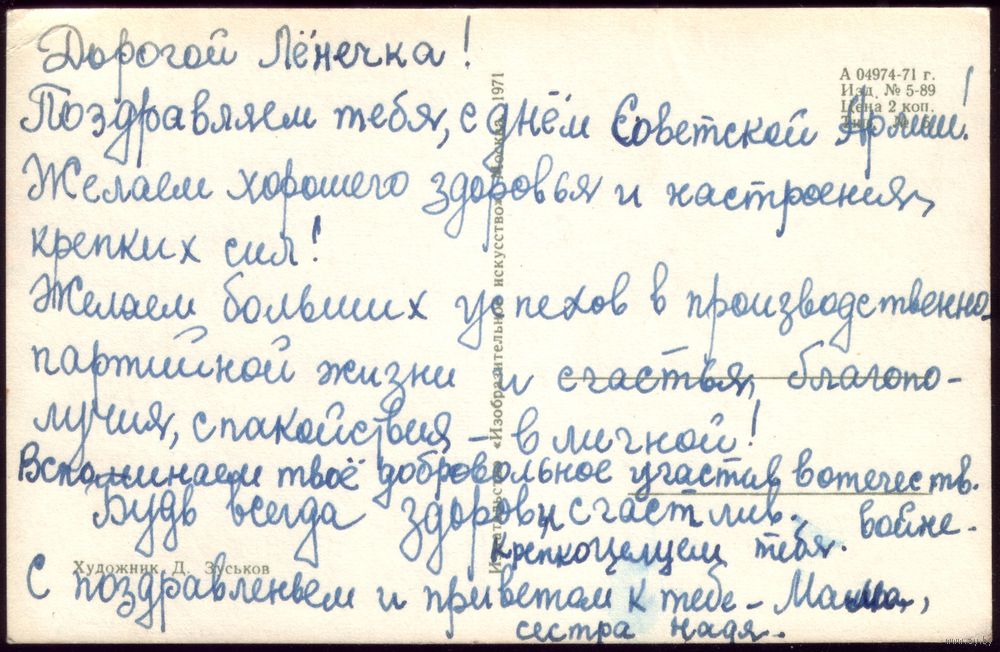 Дорогой Лёнечка!
А 04974-71 г.
Изд. № 5-89
Цена 2 коп.
Поздравляем тебя, с днём Советской Армии!
Желаем хорошего здоровья и настроения,
крепких сил!
Желаем больших успехов в производственно-
партийной жизни и счастья, благопо-
лучия, спокойствия – в личной!
Вспоминаем твоё добровольное участив в отечеств.
войне.
Будь всегда здоров и счастлив.
крепкоцелуем тебя.
Художник Д. Зуськов
С поздравленьем и приветом к тебе – Мама,
сестра Надя.
Издательство «Изобразительное искусство». Москва. 1971